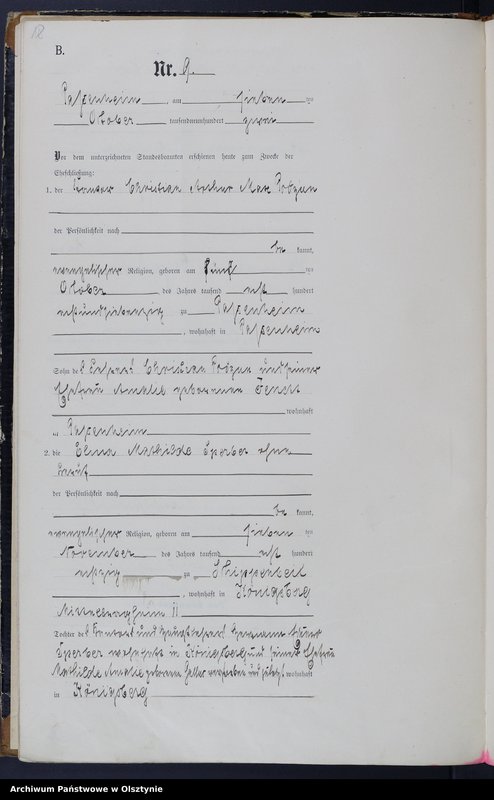 12
B.
Nr. 9.
Passenheim, am sieben ten
Oktober tausendneunhundert zwei
Vor dem unterzeichneten Standesbeamten erschienen heute zum Zwecke der
Eheschließung:
1. der Christian Arthur Max
der Persönlichkeit nach
be kannt,
evangelischer Religion, geboren am fünf ten
Oktober des Jahres tausend acht hundert
achtundsiebenzig zu Passenheim
, wohnhaft in Passenheim
Sohn des Christian und seiner
Ehefrau Amalie geborenen
wohnhaft
in Passenheim
2. die Elma Mathilde Sperber ohne
Beruf
der Persönlichkeit nach
be kannt,
evangelischer Religion, geboren am sieben ten
November des Jahres tausend acht hundert
achtzig zu Schippenbeil
, wohnhaft in Königsberg
11
Tochter des und Hermann
Sperber wohnhaft in Königsberg und seiner Ehefrau
Mathilde Amalie geborenen verstorben und zuletzt wohnhaft
in Königsberg
Archiwum Państwowe w Olsztynie